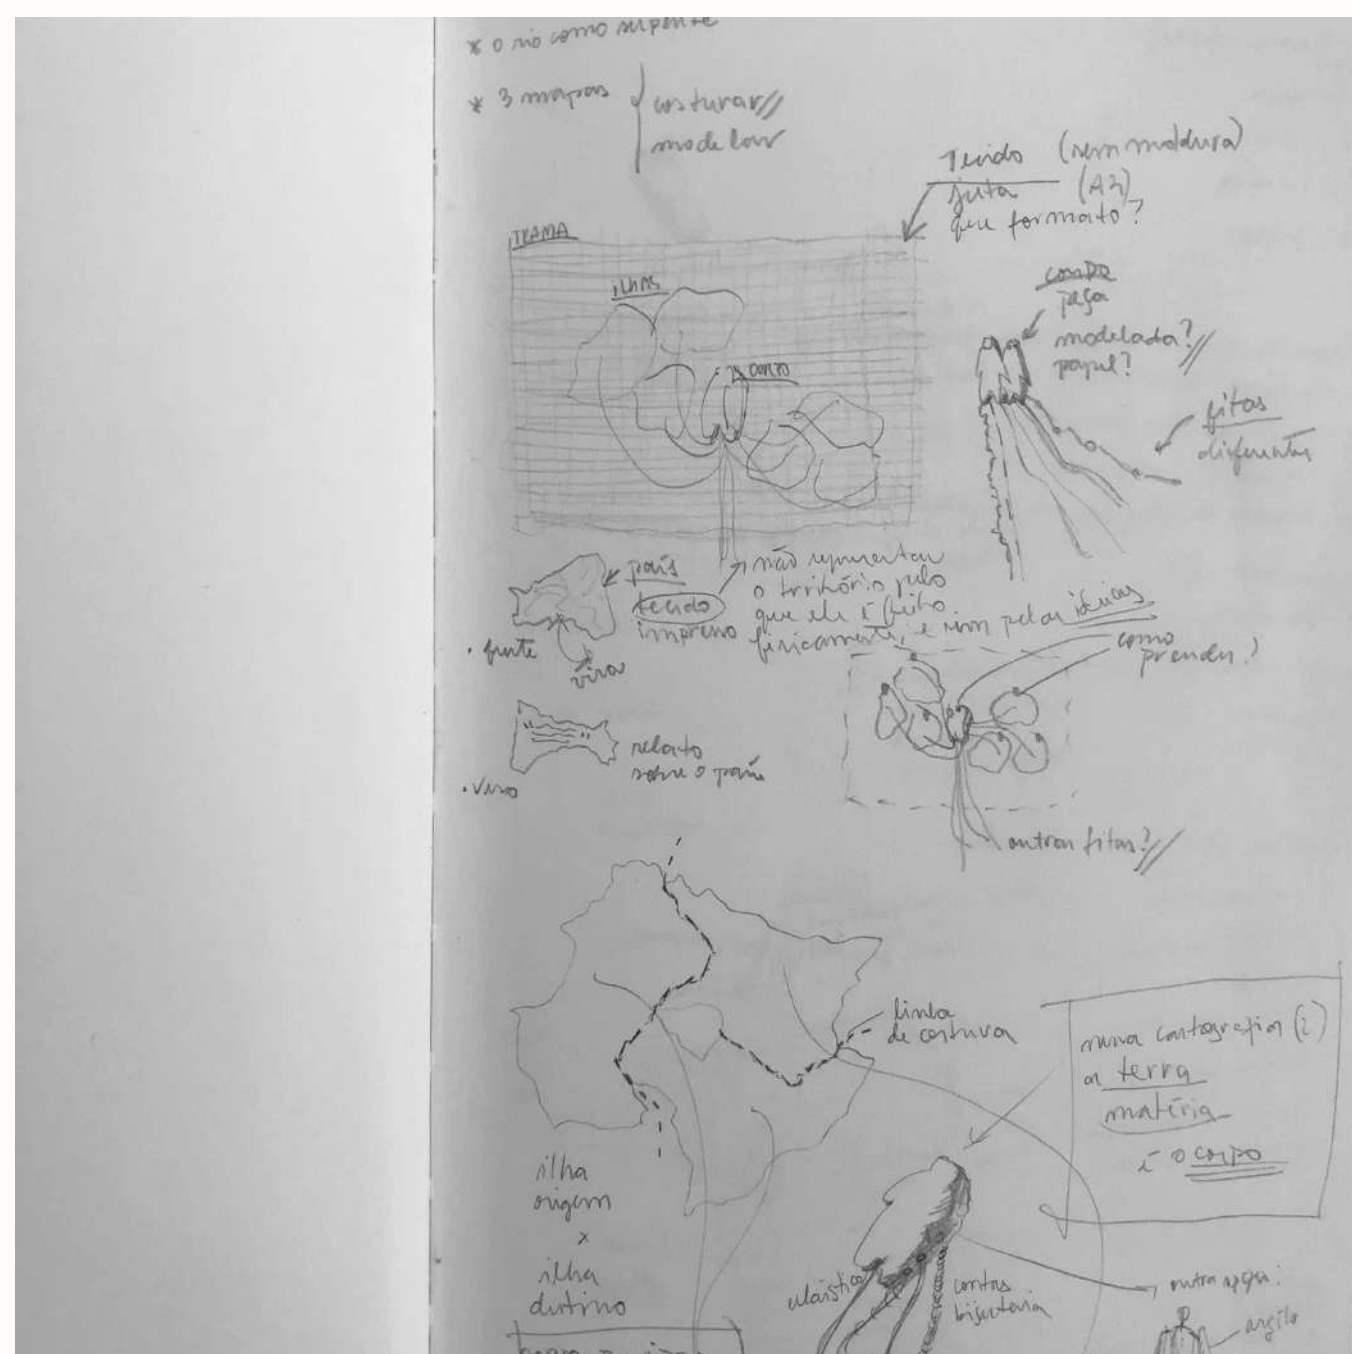 * o rio como serpente
* 3 mapas
costurar//
modelar
Tecido (sem moldura)
juta (A2)
que formato?
TRAMA
ilhas
corpo
corpo
peça
modelada?//
papel?
fitas
diferentes
país
tecido
impresso
não representar
o território pelo
que ele é feito
fisicamente, e sim pelas ideias
• frente
vira
como
prender?
relato
sobre o país
• verso
outras fitas?//
linha
de costura
numa cartografia (i)
a terra
matéria
é o corpo
ilha
origem
x
ilha
destino
elástico
contas
bijuteria
outra opção:
argila